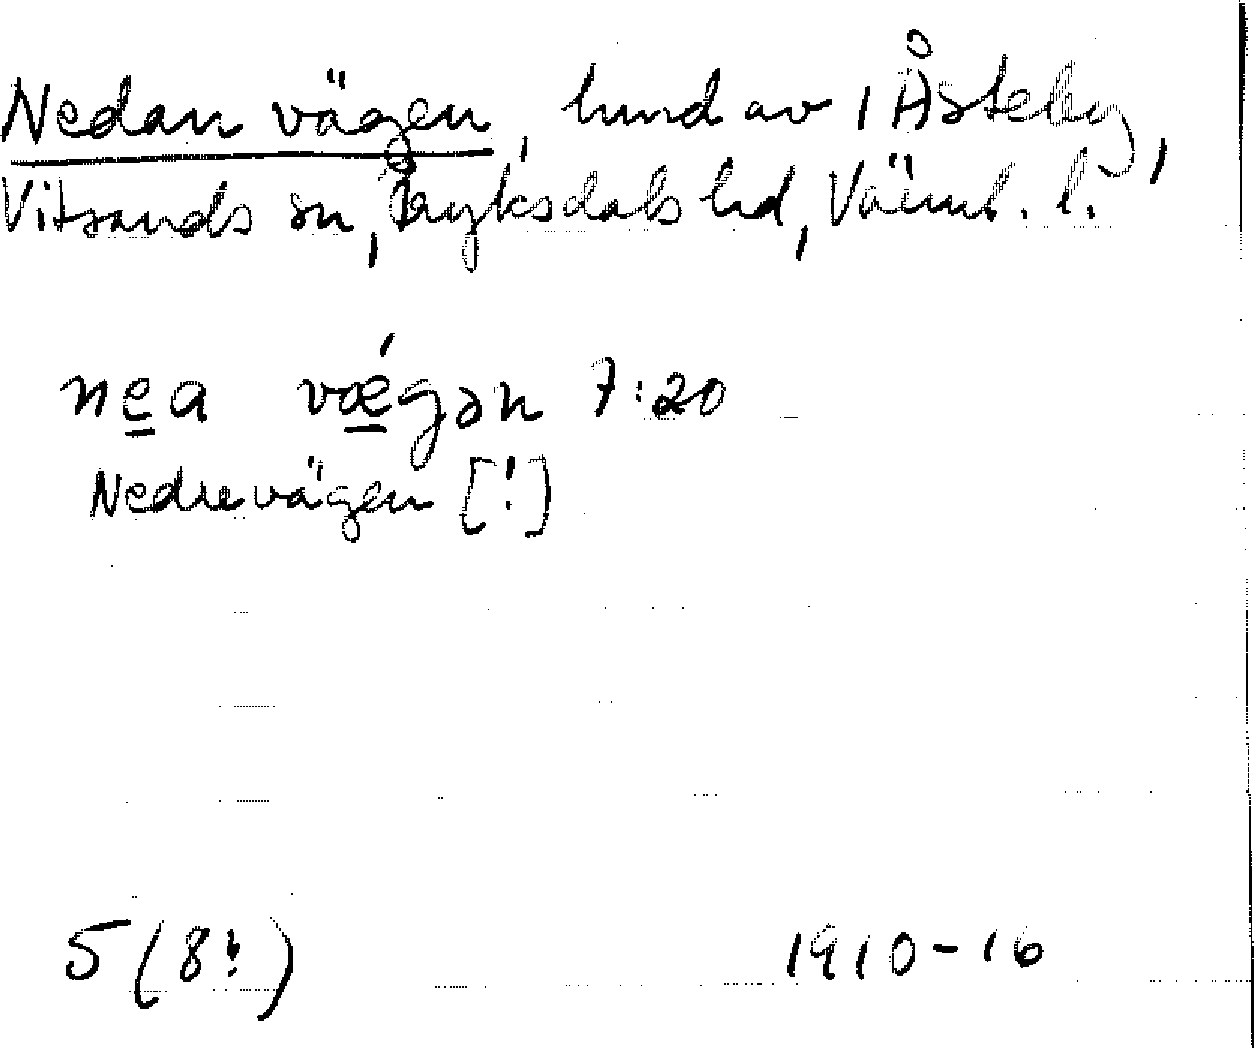 Nedan vägen, hmd av 1 Åsteby,
Vitsands sn, Fryksdals hd, Värml. l.
nea vǽgən 7:20
Nedrevägen [!]
5 (8?)
1910-16